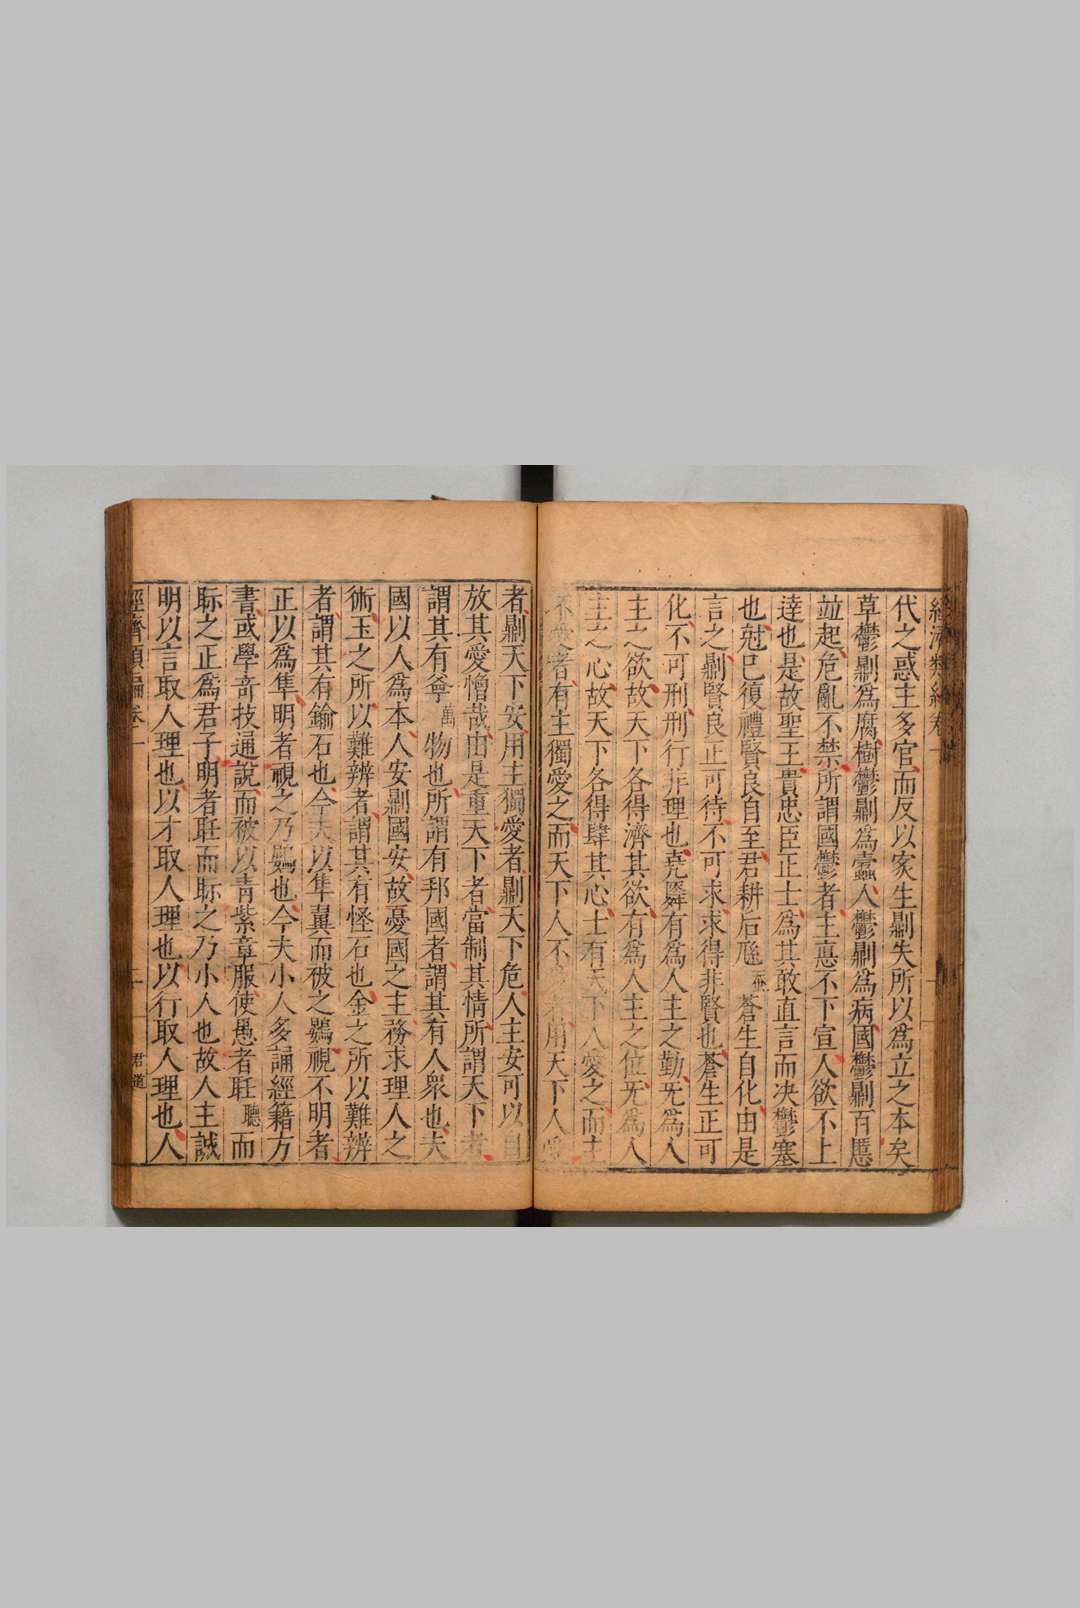 經濟類編卷一
代之惑主多官而反以家生𠟭失所以爲立之本矣
草鬱𠟭爲腐樹鬱𠟭爲蠹人鬱𠟭爲病國鬱𠟭百慝
竝起危亂不禁所謂國鬱者主悳不下宣人欲不上
達也是故聖王貴忠臣正士爲其敢直言而决鬱塞
也尅巳復禮賢良自至君耕后蠶蒼生自化由是
言之𠟭賢良正可待不可求求得非賢也蒼生正可
化不可刑刑行非理也堯舜有爲人主之勤无爲人
主之欲故天下各得濟其欲有爲人主之位无爲人
主之心故天下各得肆其心士有天下人愛之而主
不愛者有主獨愛之而天下人不愛者用天下人愛
者𠟭天下安用主獨愛者𠟭天下危人主安可以自
放其愛憎哉由是重天下者當制其情所謂天下者
謂其有萬物也所謂有邦國者謂其有人衆也夫
國以人爲本人安𠟭國安故憂國之主務求理人之
術玉之所以難辨者謂其有怪石也金之所以難辨
者謂其有鍮石也今夫以隼翼而被之鷃視不明者
正以爲隼明者視之乃鷃也今夫小人多誦經籍方
書或學奇技通說而被以靑紫章服使愚者聽而
眎之正爲君子明者聽而眎之乃小人也故人主誠
明以言取人理也以才取人理也以行取人理也人
經濟類編卷一
君道